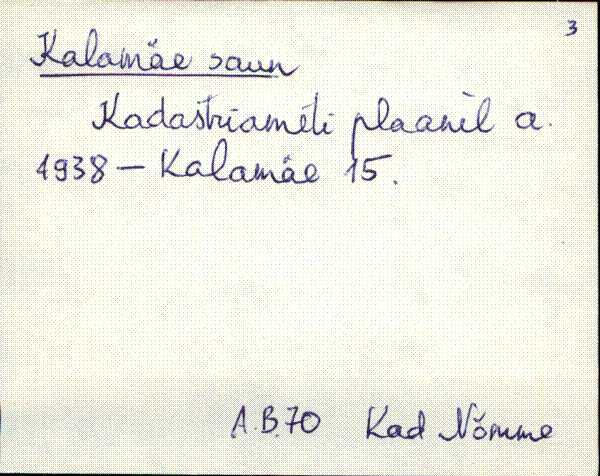 3
Kalamäe saun
Kadastriameti plaanil a.
1938 – Kalamäe 15.
A.B.70 Kad Nõmme